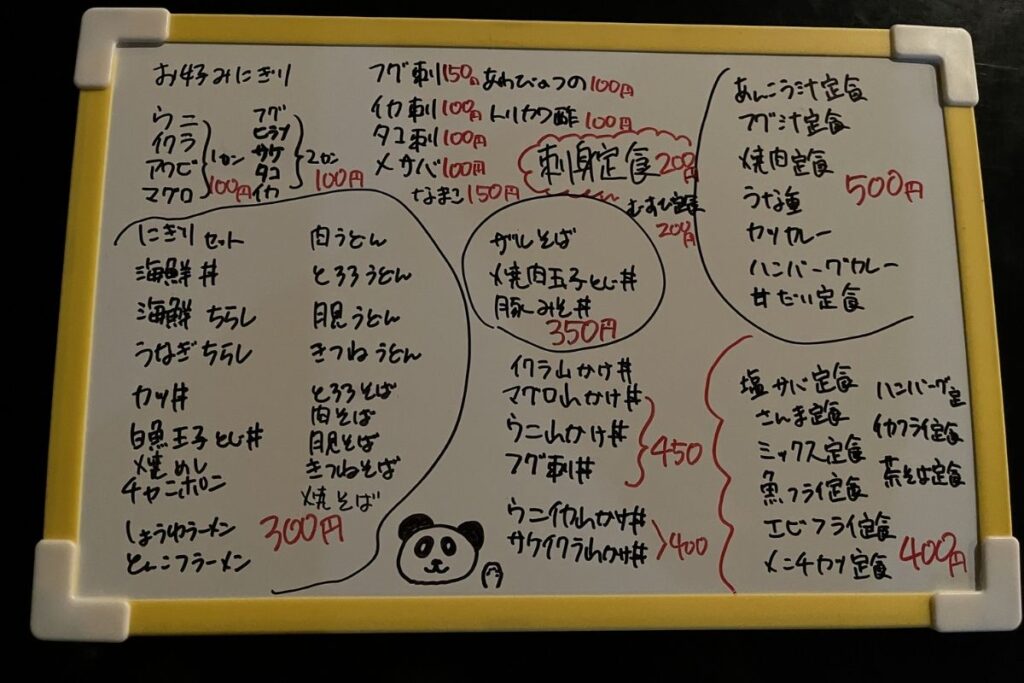 お好みにぎり
ウニ
イクラ
アワビ
マグロ
1カン
100円
フグ
ヒラメ
サケ
タコ
イカ
2カン
100円
フグ刺150円
イカ刺100円
タコ刺100円
〆サバ100円
なまこ150円
あわびょつの100円
トリカワ酢100円
刺身定食200円
むすび定食
200円
あんこう汁定食
フグ汁定食
焼肉定食
うな重
カツカレー
ハンバーグカレー
甘だい定食
500円
にぎりセット
海鮮丼
海鮮ちらし
うなぎちらし
カツ丼
白魚玉子とじ丼
焼めし
チャンポン
しょうゆラーメン
とんこつラーメン
肉うどん
とろろうどん
月見うどん
きつねうどん
とろろそば
肉そば
月見そば
きつねそば
焼そば
300円
ザルそば
焼肉玉子とじ丼
豚みそ丼
350円
イクラ山かけ丼
マグロ山かけ丼
ウニ山かけ丼
フグ刺丼
450
ウニイカ山かけ丼
サケイクラ山かけ丼
400
塩サバ定食
さんま定食
ミックス定食
魚フライ定食
エビフライ定食
メンチカツ定食
ハンバーグ定
イカフライ定食
茶そば定食
400円